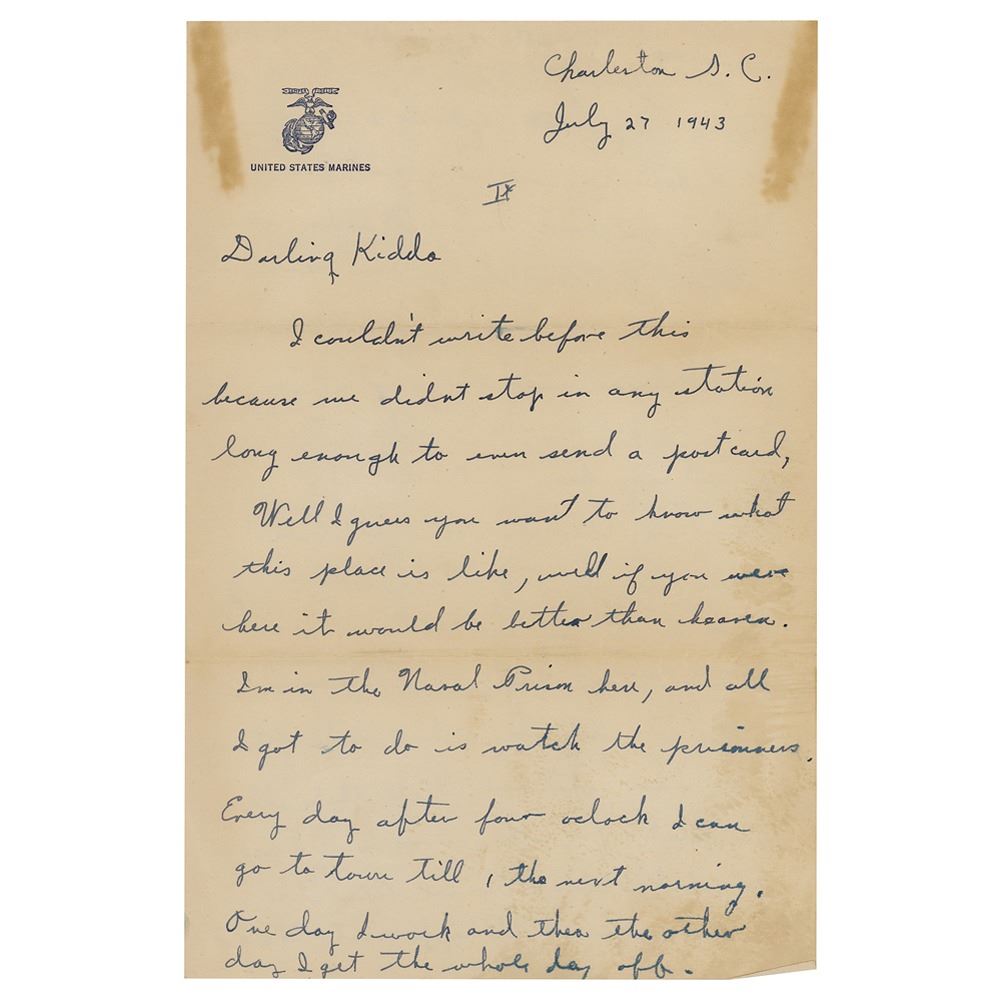 Charleston S. C.
July 27 1943
UNITED STATES MARINES
Darling Kiddo
I couldn't write before this
because we didnt stop in any station
long enough to even send a postcard,
Well I guess you want to know what
this place is like, well if you were
here it would be better than heaven.
Im in the Naval Prison here, and all
I got to do is watch the prisoners.
Every day after four oclock I can
go to town till , the next morning.
One day I work and then the other
day I get the whole day off.